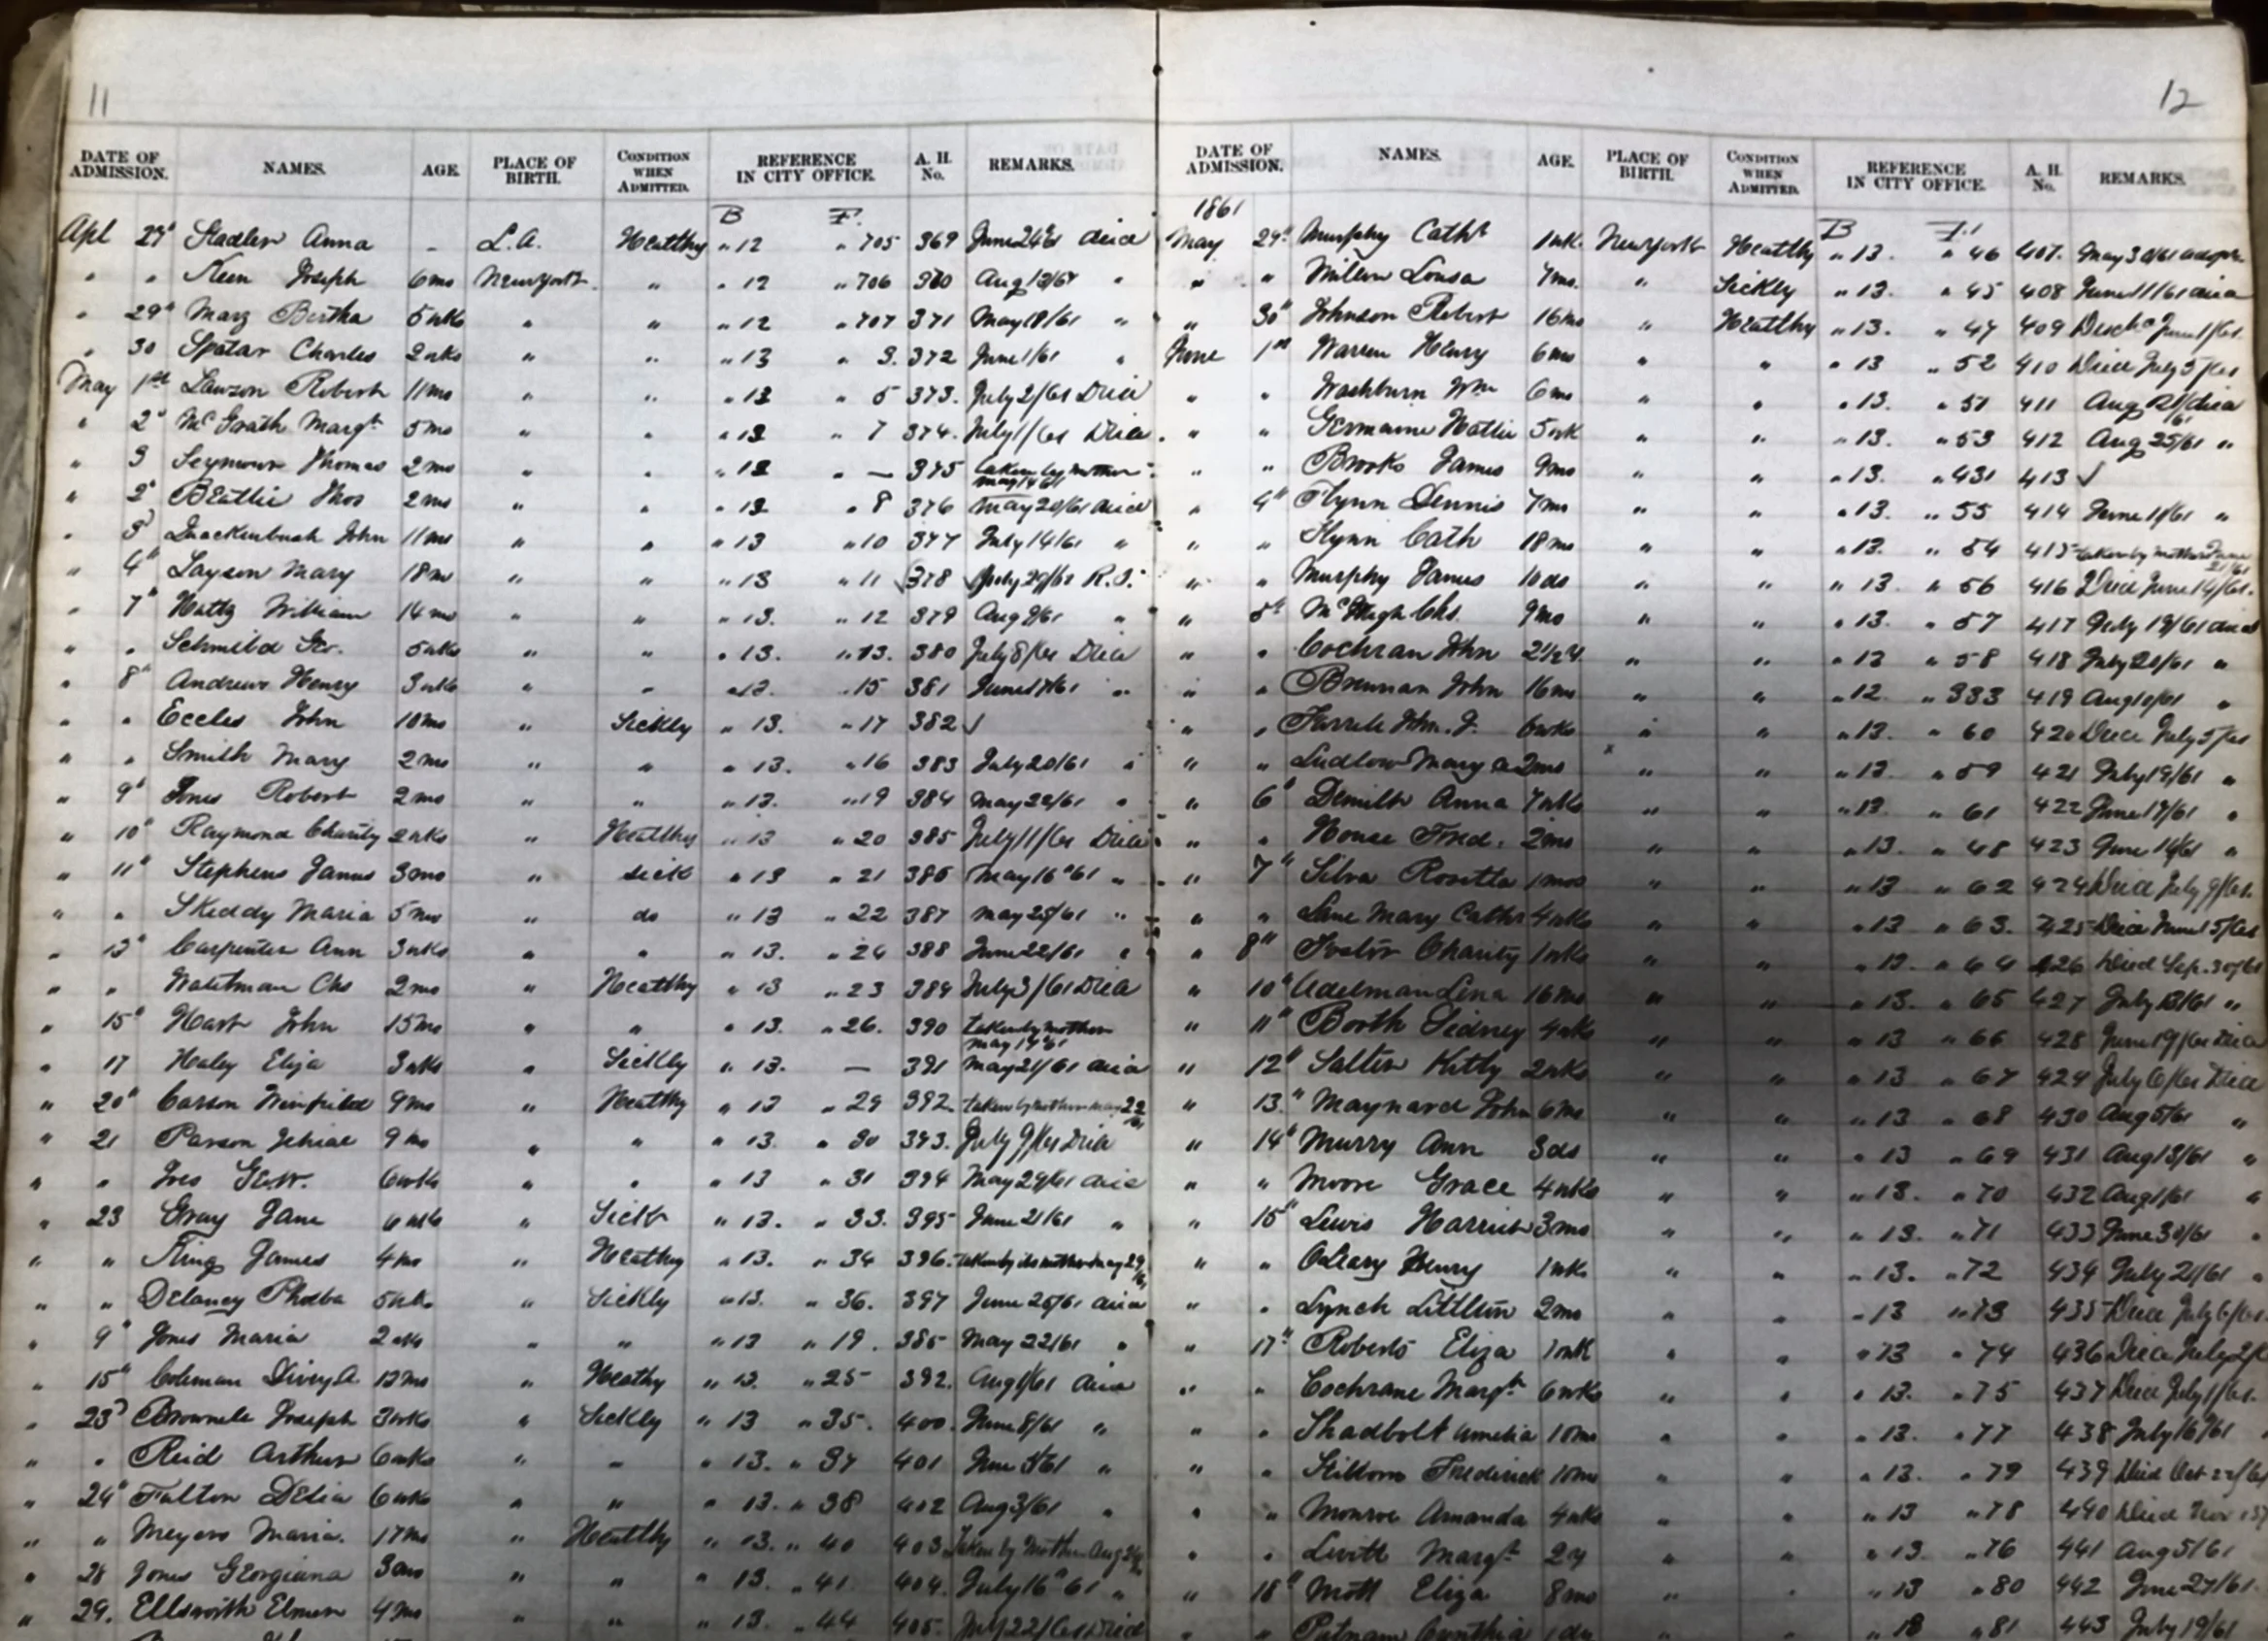 11
DATE OF ADMISSION. NAMES. AGE. PLACE OF BIRTH. CONDITION WHEN ADMITTED. REFERENCE IN CITY OFFICE. A. H. No. REMARKS.
B F.
Apl 27" Stadler Anna - L.A. Healthy " 12 " 705 369 June 24/61 died
" " Keen Joseph 6mo New York " " 12 " 706 370 Aug 13/61 "
" 29" Marz Bertha 5wks " " " 12 " 707 371 May 18/61 "
" 30 Spatar Charles 2wks " " " 13 " 3. 372 June 1/61 "
May 1st Lawson Robert 11mo " " " 13 " 5 373. July 2/61 Died
" 2" McGrath Margt 5mo " " " 13 " 7 374. July 1/61 Died
" 3 Seymour Thomas 2mo " " " 13 " — 375 taken by mother may 14/61
" 2" Beattie Thos 2mo " " " 13 " 8 376 May 20/61 died
" 3" Quackenbush John 11mo " " " 13 " 10 377 July 14/61 "
" 4" Layson Mary 18m " " " 13 " 11 378 July 29/61 R.I.
" 7" Hattz William 14mo " " " 13. " 12 379 Aug 9/61 "
" " Schmeld Geo. 5wks " " " 13. " 13. 380 July 8/61 Died
" 8" Andrews Henry 3wks " " " 13. " 15 381 June 17/61 "
" " Eccles John 10mo " Sickly " 13. " 17 382 √
" " Smith Mary 2mo " " " 13. " 16 383 July 20/61 "
" 9" Jones Robert 2mo " " " 13. " 19 384 May 22/61 "
" 10" Raymond Charity 2wks " Healthy " 13 " 20 385 July 11/61 Died
" 11" Stephens James 3mo " sick " 13 " 21 386 May 16"61 "
" " Skeddy Maria 5mo " do " 13 " 22 387 May 25/61 "
" 13" Carpenter Ann 3wks " " " 13. " 24 388 June 22/61 "
" " Waitman Chs 2mo " Healthy " 13 " 23 389 July 3/61 Died
" 15" Hart John 15mo " " " 13. " 26. 390 taken by mother may 19/61
" 17 Haley Eliza 3wks " Sickly " 13. — 391 May 21/61 died
" 20" Carson Winfield 9mo " Healthy " 13 " 29 392. taken by mother may 22/61
" 21 Parson Jehiae 9mo " " " 13. " 30 393. July 9/61 Died
" " Ives Geo W. 6wks " " " 13 " 31 394 May 29/61 died
" 23 Gray Jane 6wks " Sick " 13. " 33. 395 June 21/61 "
" " King James 4mo " Healthy " 13. " 34 396. taken by its mother may 29/61
" " Delancy Phoeba 5wks " Sickly " 13. " 36. 397 June 25/61 died
" 9" Jones Maria 2wks " " " 13 " 19. 385 May 22/61 "
" 15" Coleman Divey A. 13mo " Heathy " 13. " 25 392. Aug 1/61 died
" 23" Brownele Joseph 3wks " Sickly " 13 " 35. 400. June 8/61 "
" " Reid Arthur 6wks " " " 13. " 37 401 June 5/61 "
" 24" Falton Delia 6wks " " " 13. " 38 402 Aug 3/61 "
" " Meyers Maria. 17mo " Healthy " 13. " 40 403 Taken by Mother Aug
" 28 Jones Georgiana 3mo " " " 13. " 41 404. July 16"61 "
" 29. Ellsworth Elmer 4mo " " " 13. " 44 405. July 22/61 Died
12
DATE OF ADMISSION. NAMES. AGE. PLACE OF BIRTH. CONDITION WHEN ADMITTED. REFERENCE IN CITY OFFICE. A. H. No. REMARKS.
1861 B F.
May 29" Murphy Cath 1wk. New York Healthy " 13. " 46 407. May 30/61 adop
" " Millen Lousa 7mo. " Sickly " 13. " 45 408 June 11/61 died
" 30" Johnson Robert 16mo " Healthy " 13. " 47 409 Dischd June 1/61.
June 1st Warren Henry 6mo " " " 13 " 52 410 Died July 5/61
" " Washburn Wm 6mo " " " 13. " 51 411 Aug 21/61 died
" " Germaine Hattie 5wk " " " 13. " 53 412 Aug 25/61 "
" " Brooks James 9mo " " " 13. " 431 413 √
" 4" Flynn Dennis 7mo " " " 13. " 55 414 June 11/61 "
" " Flynn Cath 18mo " " " 13. " 54 415 taken by mother June 21/61
" " Murphy James 10ds " " " 13. " 56 416 Died June 14/61.
" 5" McHugh Chs. 9mo " " " 13. " 57 417 July 19/61 died
" " Cochran John 2½y. " " " 13 " 58 418 July 20/61 "
" " Brennan John 16mo " " " 12. " 333 419 Aug 10/61 "
" " Farrele Thm. J. 6wks " " " 13. " 60 420 Died July 5/61
" " Ludlow Mary A 2mo " " " 13. " 59 421 July 19/61 "
" 6" Demilt Anna 7wks " " " 13. " 61 422 June 17/61 "
" " House Fred. 2mo " " " 13. " 48 423 June 14/61 "
" 7" Silva Rosetta 1mos " " " 13 " 62 424 Died July 9/61.
" " Lane Mary Cathr 4wks " " " 13 " 63. 425 Died June 15/61
" 8" Foster Charity 1wks " " " 13. " 64 426 Died Sep. 30/61
" 10" Adelman Lena 16mo " " " 13. " 65 427 July 13/61 "
" 11" Booth Sidney 4wks " " " 13 " 66 428 June 19/61 Died
" 12" Salter Kitty 2wks " " " 13 " 67 429 July 6/61 Died
" 13." Maynard John 6mo " " " 13 " 68 430 Aug 5/61 "
" 14" Murry Ann 3ds " " " 13 " 69 431 Aug 13/61 "
" " Moore Grace 4wks " " " 13. " 70 432 Aug 1/61 "
" 15" Lewis Harriet 3mo " " " 13. " 71 433 June 30/61 "
" " OLeary Henry 1wk " " " 13. " 72 434 July 21/61 "
" " Lynch Littleton 2mo " " " 13 " 73 435 Died July 6/61.
" 17" Roberts Eliza 1wk " " " 13 " 74 436 Died July 2/6
" " Cochrane Margt 6wks " " " 13. " 75 437 Died July 1/61.
" " Shadbolt Amelia 10mo " " " 13. " 77 438 July 16/61
" " Stillson Frederick 10mo " " " 13. " 79 439 Died Oct 22/61
" " Monroe Amanda 4wks " " " 13 " 78 440 Died Nov
" " Levitt Margt 2y " " " 13. " 76 441 Aug 5/61
" 18" Mott Eliza 8mo " " " 13 " 80 442 June 27/61.
" " Putnam Cynthia 1dy " " 13 " 81 443 July 19/61